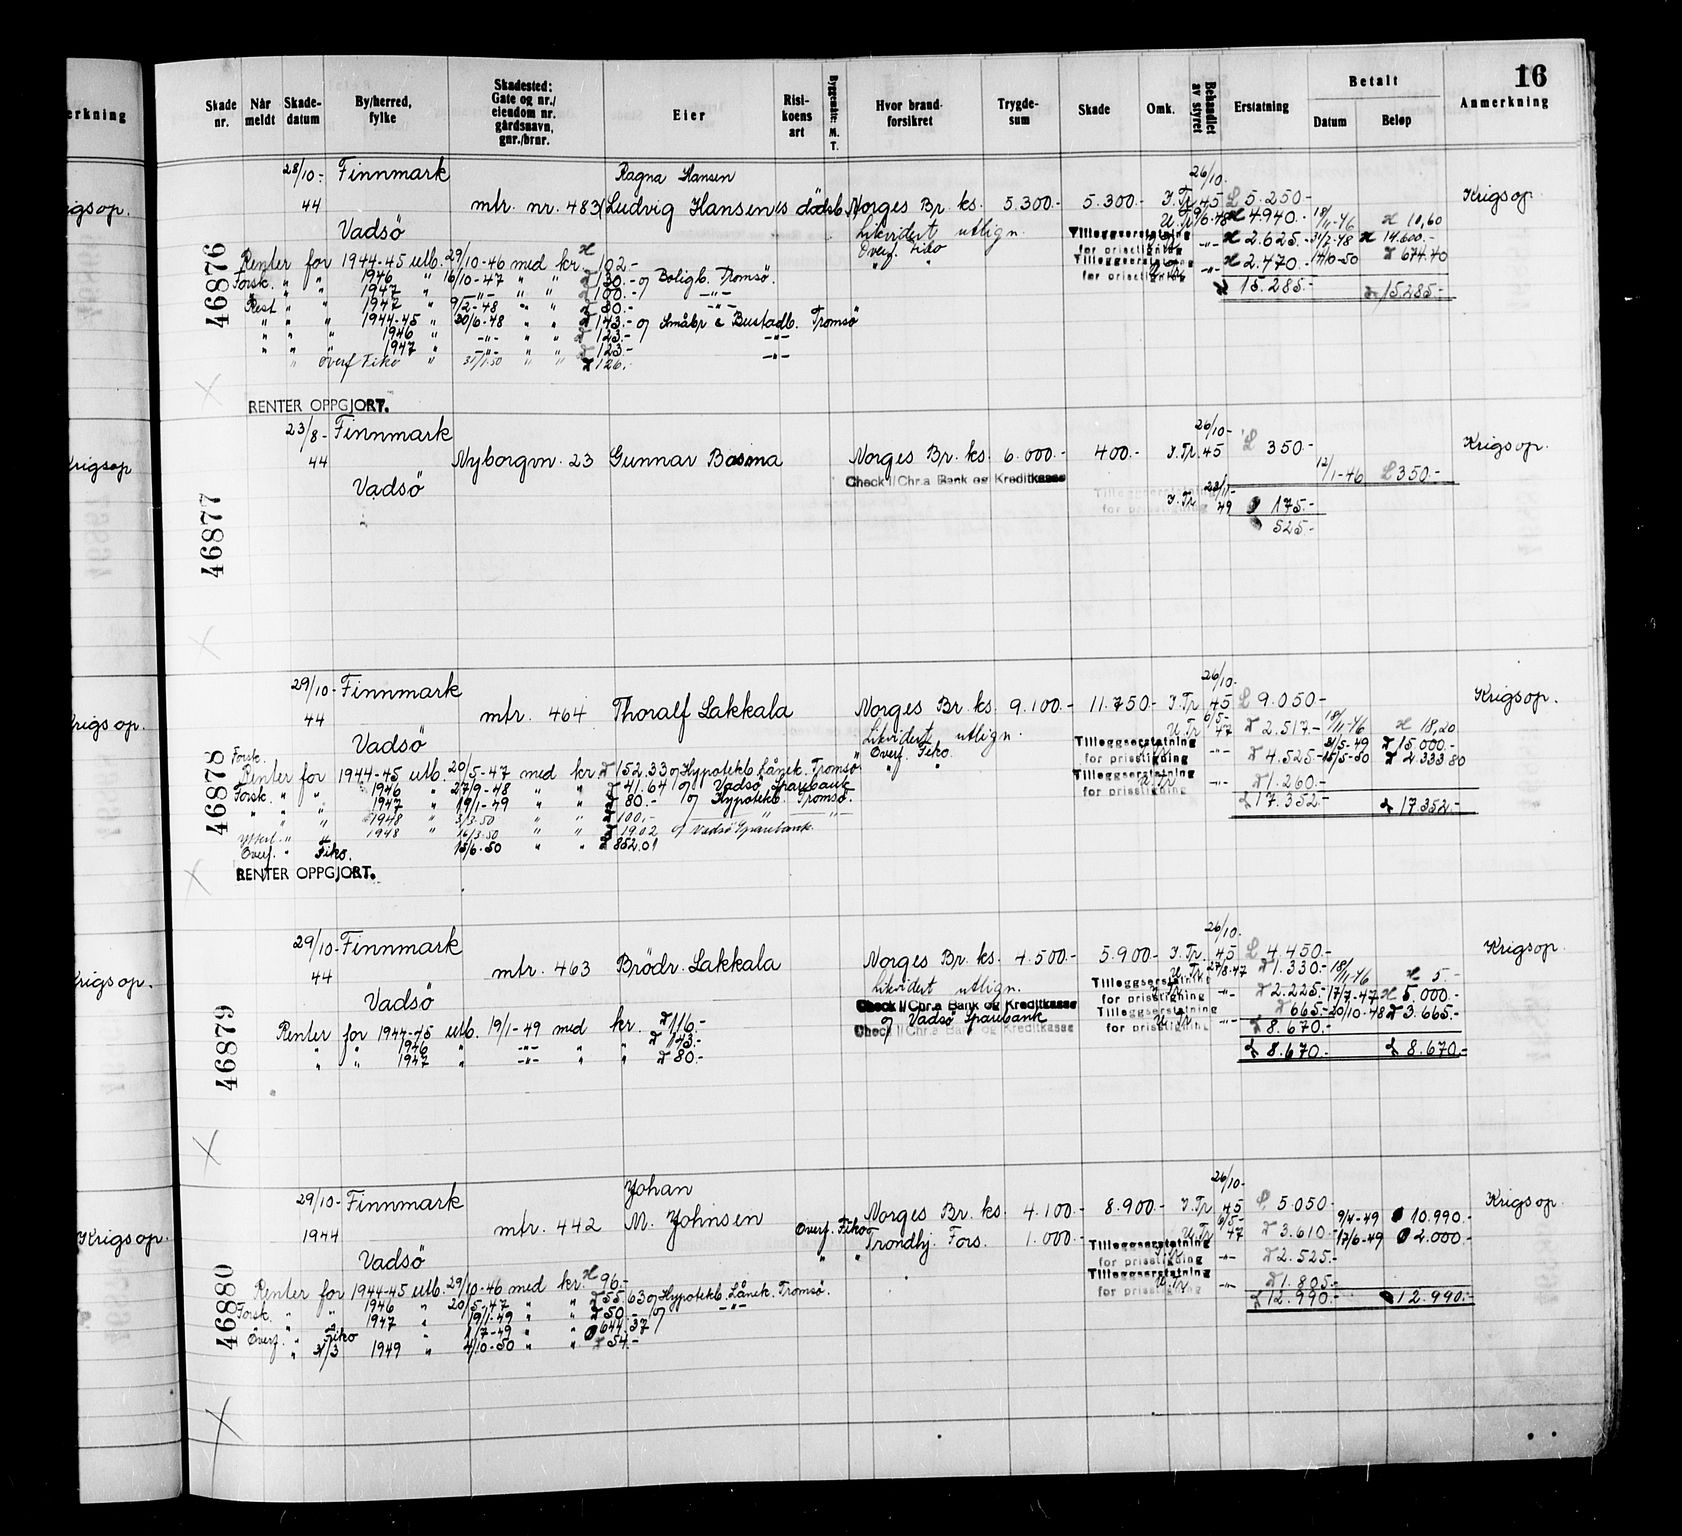 16
erkning
Skade nr.
Når meldt
Skade- datum
By/herred, fylke
Skadested: Gate og nr./ eiendom nr. gårdsnavn, gnr./brnr.
Eier
Risi- koens art
Byggemåte: M. T.
Hvor brand- forsikret
Trygde- sum
Skade
Omk.
Behandlet av styret
Erstatning
Betalt
Datum
Beløp
Anmerkning
46876
28/10- Finnmark Ragna Hansen 26/10-
igsop. 44 mtr. nr. 483 Ludvig Hansens dödsb. Norges Br. ks. 5.300.- 5.300.- T.Tr. 45 £ 5.250- Krigsop.
Vadsö Likvidert utlign. U.Tr. 9/6-48 4.940.- 18/11-46 10,60
Tilleggserstatning for prisstigning -"- 2.625.- 31/7-48 14.600.-
Overf. Fiko
Tilleggserstatning for prisstigning -"- 2.470.- 17/10-50 674.40
15.285.- 15.285.-
Renter for 1944-45 utb. 29/10-46 med kr. 102-
Forsk. " " 1946 " 16/10-47 " " 130.- og Boligb. Tromsö.
" " " 1947 " -"- " " 100.- -"-
Rest " " 1947 " 9/2-48 " " 80.- -"-
" " " 1944-45 " 30/6-48 " " 143.- og Småbr & Bustadb. Tromsö
" " " 1946 " -"- " " 123.- -"-
" " " 1947 " -"- " " 123- -"-
" overf Fiko " 31/1.50 " " 126.-
RENTER OPPGJORT.
46877
23/8- Finnmark 26/10-
Krigsop 44 Nyborgvn. 23 Gunnar Basma Norges Br. ks. 6.000.- 400.- T.Tr. 45 £ 350- Krigsop.
Check I/Chr.a Bank og Kreditkasse 12/1-46 £ 350.-
Vadsö Tilleggserstatning for prisstigning T.Tr. 23/11-49 175.-
525.-
46878
29/10- Finnmark 26/10-
Krigsop. 44 mtr. 464 Thoralf Lakkala Norges Br. ks. 9.100.- 11.750- T.Tr. 45 £ 9.050- Krigsop.
Vadsö Likvidert utlign. U.Tr. 6/5-47 2.517.- 18/11-46 18,20
" Overf. Fiko. Tilleggserstatning for prisstigning -"- 4.525- 31/5-49 15.000.-
Tilleggserstatning for prisstigning -"- 1.260.- 15/5-50 2.333 80
17.352.- 17.352.-
Forsk.
Renter for 1944-45 utb. 20/5-47 med kr. 152.33 og Hypotekb. Lånek. Tromsö
Forsk. " " 1946 " 27/9-48 " " 41.64 og Vadsö Sparebank
" " " 1947 " 19/1-49 " " 80.- og Hypotekb. Tromsö.
" " 1948 " 3/3.50 " " 100.- -"-
" " 1948 " 16/3.50 " " 19.02 og Vadsö Sparebank.
Overf. " Fiko. 15/6-50 " " 852.01
RENTER OPPGJORT.
46879
29/10- Finnmark 26/10-
Krigsop. 44 mtr. 463 Brödr. Lakkala Norges Br. ks. 4.500.- 5.900.- T.Tr. 45 £ 4.450- Krigsop.
Vadsö Likvidert utlign. U.Tr. 27/8-47 1.330- 18/11-46 5.-
Check I/Chr.a Bank og Kreditkasse Tilleggserstatning for prisstigning -"- 2.225- 17/7-47 5.000.-
og Vadsö Sparebank Tilleggserstatning for prisstigning -"- 665.- 20/10-48 3.665.-
Check I/Chr.a Bank og Kreditkasse 8.670.-
8.670.- 8.670.-
Renter for 1944-45 utb. 19/1-49 med kr. 116.-
" " 1946 " -"- " " 143.-
" " 1947 " -"- " " 80.-
46880
29/10- Finnmark Johan 26/10-
Krigsop. 1944 mtr. 442 M. Johnsen Norges Br. ks. 4.100.- 8.900.- T.Tr. 45 £ 5.050- Krigsop.
Overf. Fiko Trondhj. Fors. 1.000.- U.Tr. 6/5-47 3.610.- 9/4-49 10.990.-
Vadsö Tilleggserstatning for prisstigning -"- 2.525.- 17/6-49 2.000.-
Tilleggserstatning for prisstigning -"- 1.805.-
12.990.- 12.990.-
Renter for 1944-45 utb. 29/10-46 med kr. 96.-
Forsk. " " 1946 " 20/5-47 " " 55.63 og Hypotekb. Lånek. Tromsö.
" " " 1947 " 19/1-49 " " 50.- og -"-
Overf. " Fiko 1/7-49 " " 644.37
" 31/3 1949 " 4/10-50 " " 54.-